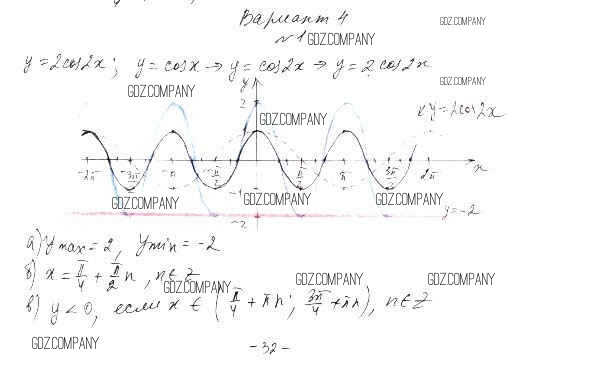 Вариант 4
GDZ.COMPANY
№1 GDZ.COMPANY
y = 2cos2x; y = cosx → y = cos2x → y = 2cos2x
GDZ.COMPANY
GDZ.COMPANY
y
2
y = 2cos2x
GDZ.COMPANY
1
-2π -3π/2 -π -π/2 π/2 π 3π/2 2π x
-1
GDZ.COMPANY GDZ.COMPANY GDZ.COMPANY
-2
y = -2
а) ymax = 2, ymin = -2
б) x = π/4 + π/2 n, n∈Z
GDZ.COMPANY GDZ.COMPANY GDZ.COMPANY
в) y < 0, если x ∈ (π/4 + πn; 3π/4 + πn), n∈Z
GDZ.COMPANY
- 32 -